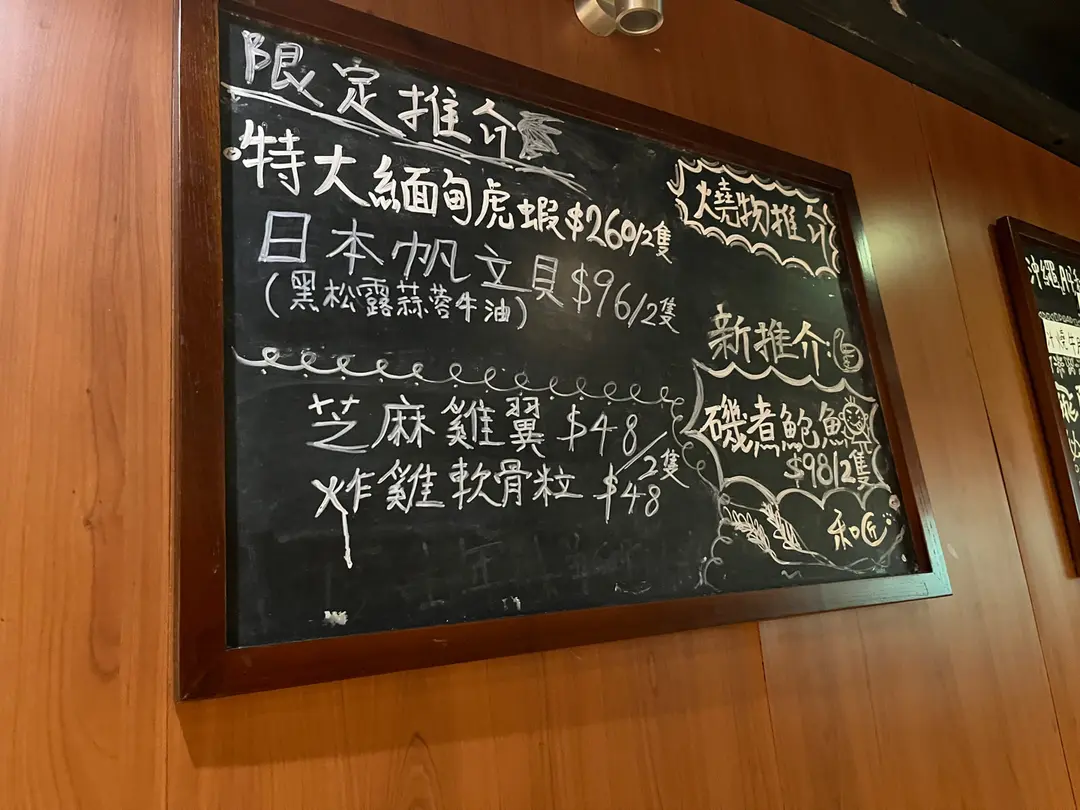 限定推介
特大緬甸虎蝦 $260/2隻
日本帆立貝 $96/2隻
(黑松露蒜蓉牛油)
芝麻雞翼 $48/2隻
炸雞軟骨粒 $48
燒物推介
新推介:
磯煮鮑魚
$98/2隻
和匠
沖繩